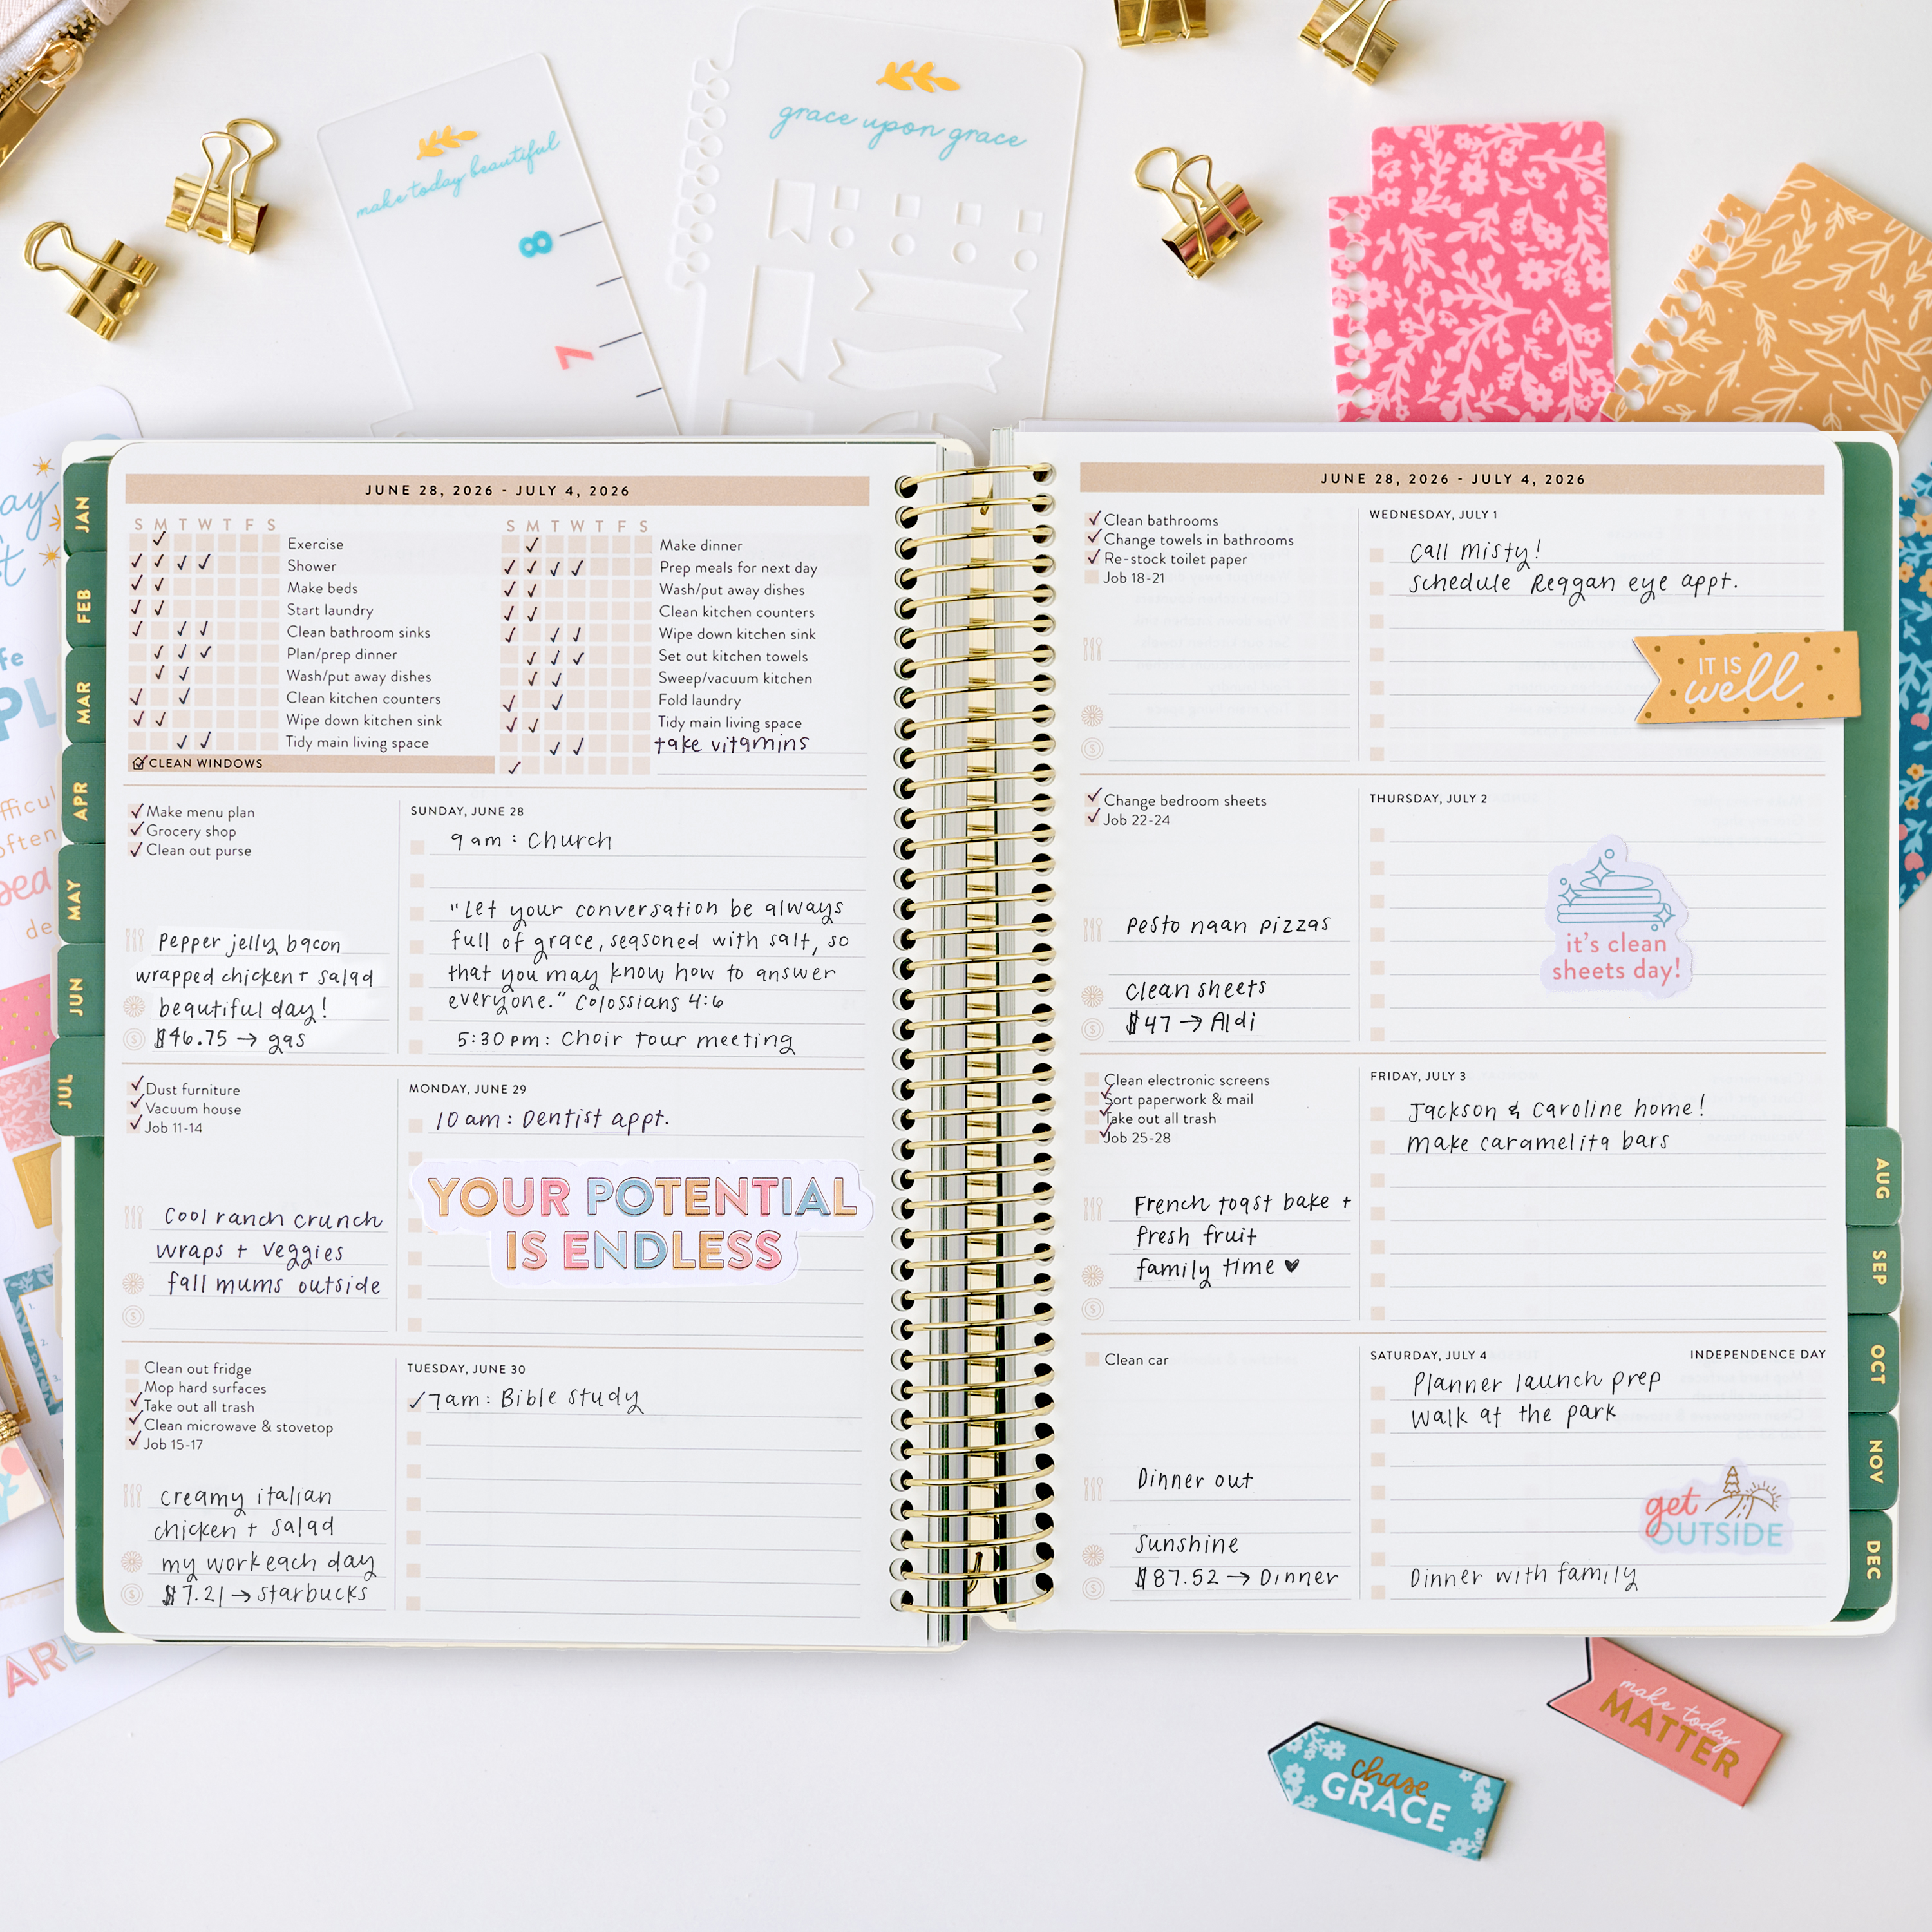 make today beautiful
8
7
grace upon grace
JAN
FEB
MAR
APR
MAY
JUN
JUL
JUNE 28, 2026 - JULY 4, 2026
S M T W T F S
Exercise
Shower
Make beds
Start laundry
Clean bathroom sinks
Plan/prep dinner
Wash/put away dishes
Clean kitchen counters
Wipe down kitchen sink
Tidy main living space
CLEAN WINDOWS
S M T W T F S
Make dinner
Prep meals for next day
Wash/put away dishes
Clean kitchen counters
Wipe down kitchen sink
Set out kitchen towels
Sweep/vacuum kitchen
Fold laundry
Tidy main living space
take vitamins
Make menu plan
Grocery shop
Clean out purse
Pepper jelly bacon
wrapped chicken + salad
beautiful day!
$46.75 → gas
SUNDAY, JUNE 28
9 am : Church
"Let your conversation be always
full of grace, seasoned with salt, so
that you may know how to answer
everyone." Colossians 4:6
5:30 pm: Choir tour meeting
Dust furniture
Vacuum house
Job 11-14
Cool ranch crunch
wraps + veggies
fall mums outside
MONDAY, JUNE 29
10 am: Dentist appt.
YOUR POTENTIAL
IS ENDLESS
Clean out fridge
Mop hard surfaces
Take out all trash
Clean microwave & stovetop
Job 15-17
creamy italian
chicken + salad
my work each day
$7.21 → starbucks
TUESDAY, JUNE 30
7am: Bible study
JUNE 28, 2026 - JULY 4, 2026
Clean bathrooms
Change towels in bathrooms
Re-stock toilet paper
Job 18-21
WEDNESDAY, JULY 1
Call Misty!
schedule Reagan eye appt.
IT IS
well
Change bedroom sheets
Job 22-24
pesto naan pizzas
clean sheets
$47 → Aldi
THURSDAY, JULY 2
it's clean
sheets day!
Clean electronic screens
Sort paperwork & mail
Take out all trash
Job 25-28
French toast bake +
fresh fruit
family time
FRIDAY, JULY 3
Jackson & Caroline home!
make caramelita bars
Clean car
Dinner out
Sunshine
$87.52 → Dinner
SATURDAY, JULY 4
INDEPENDENCE DAY
Planner launch prep
walk at the park
get
OUTSIDE
Dinner with family
AUG
SEP
OCT
NOV
DEC
make today
MATTER
chase
GRACE